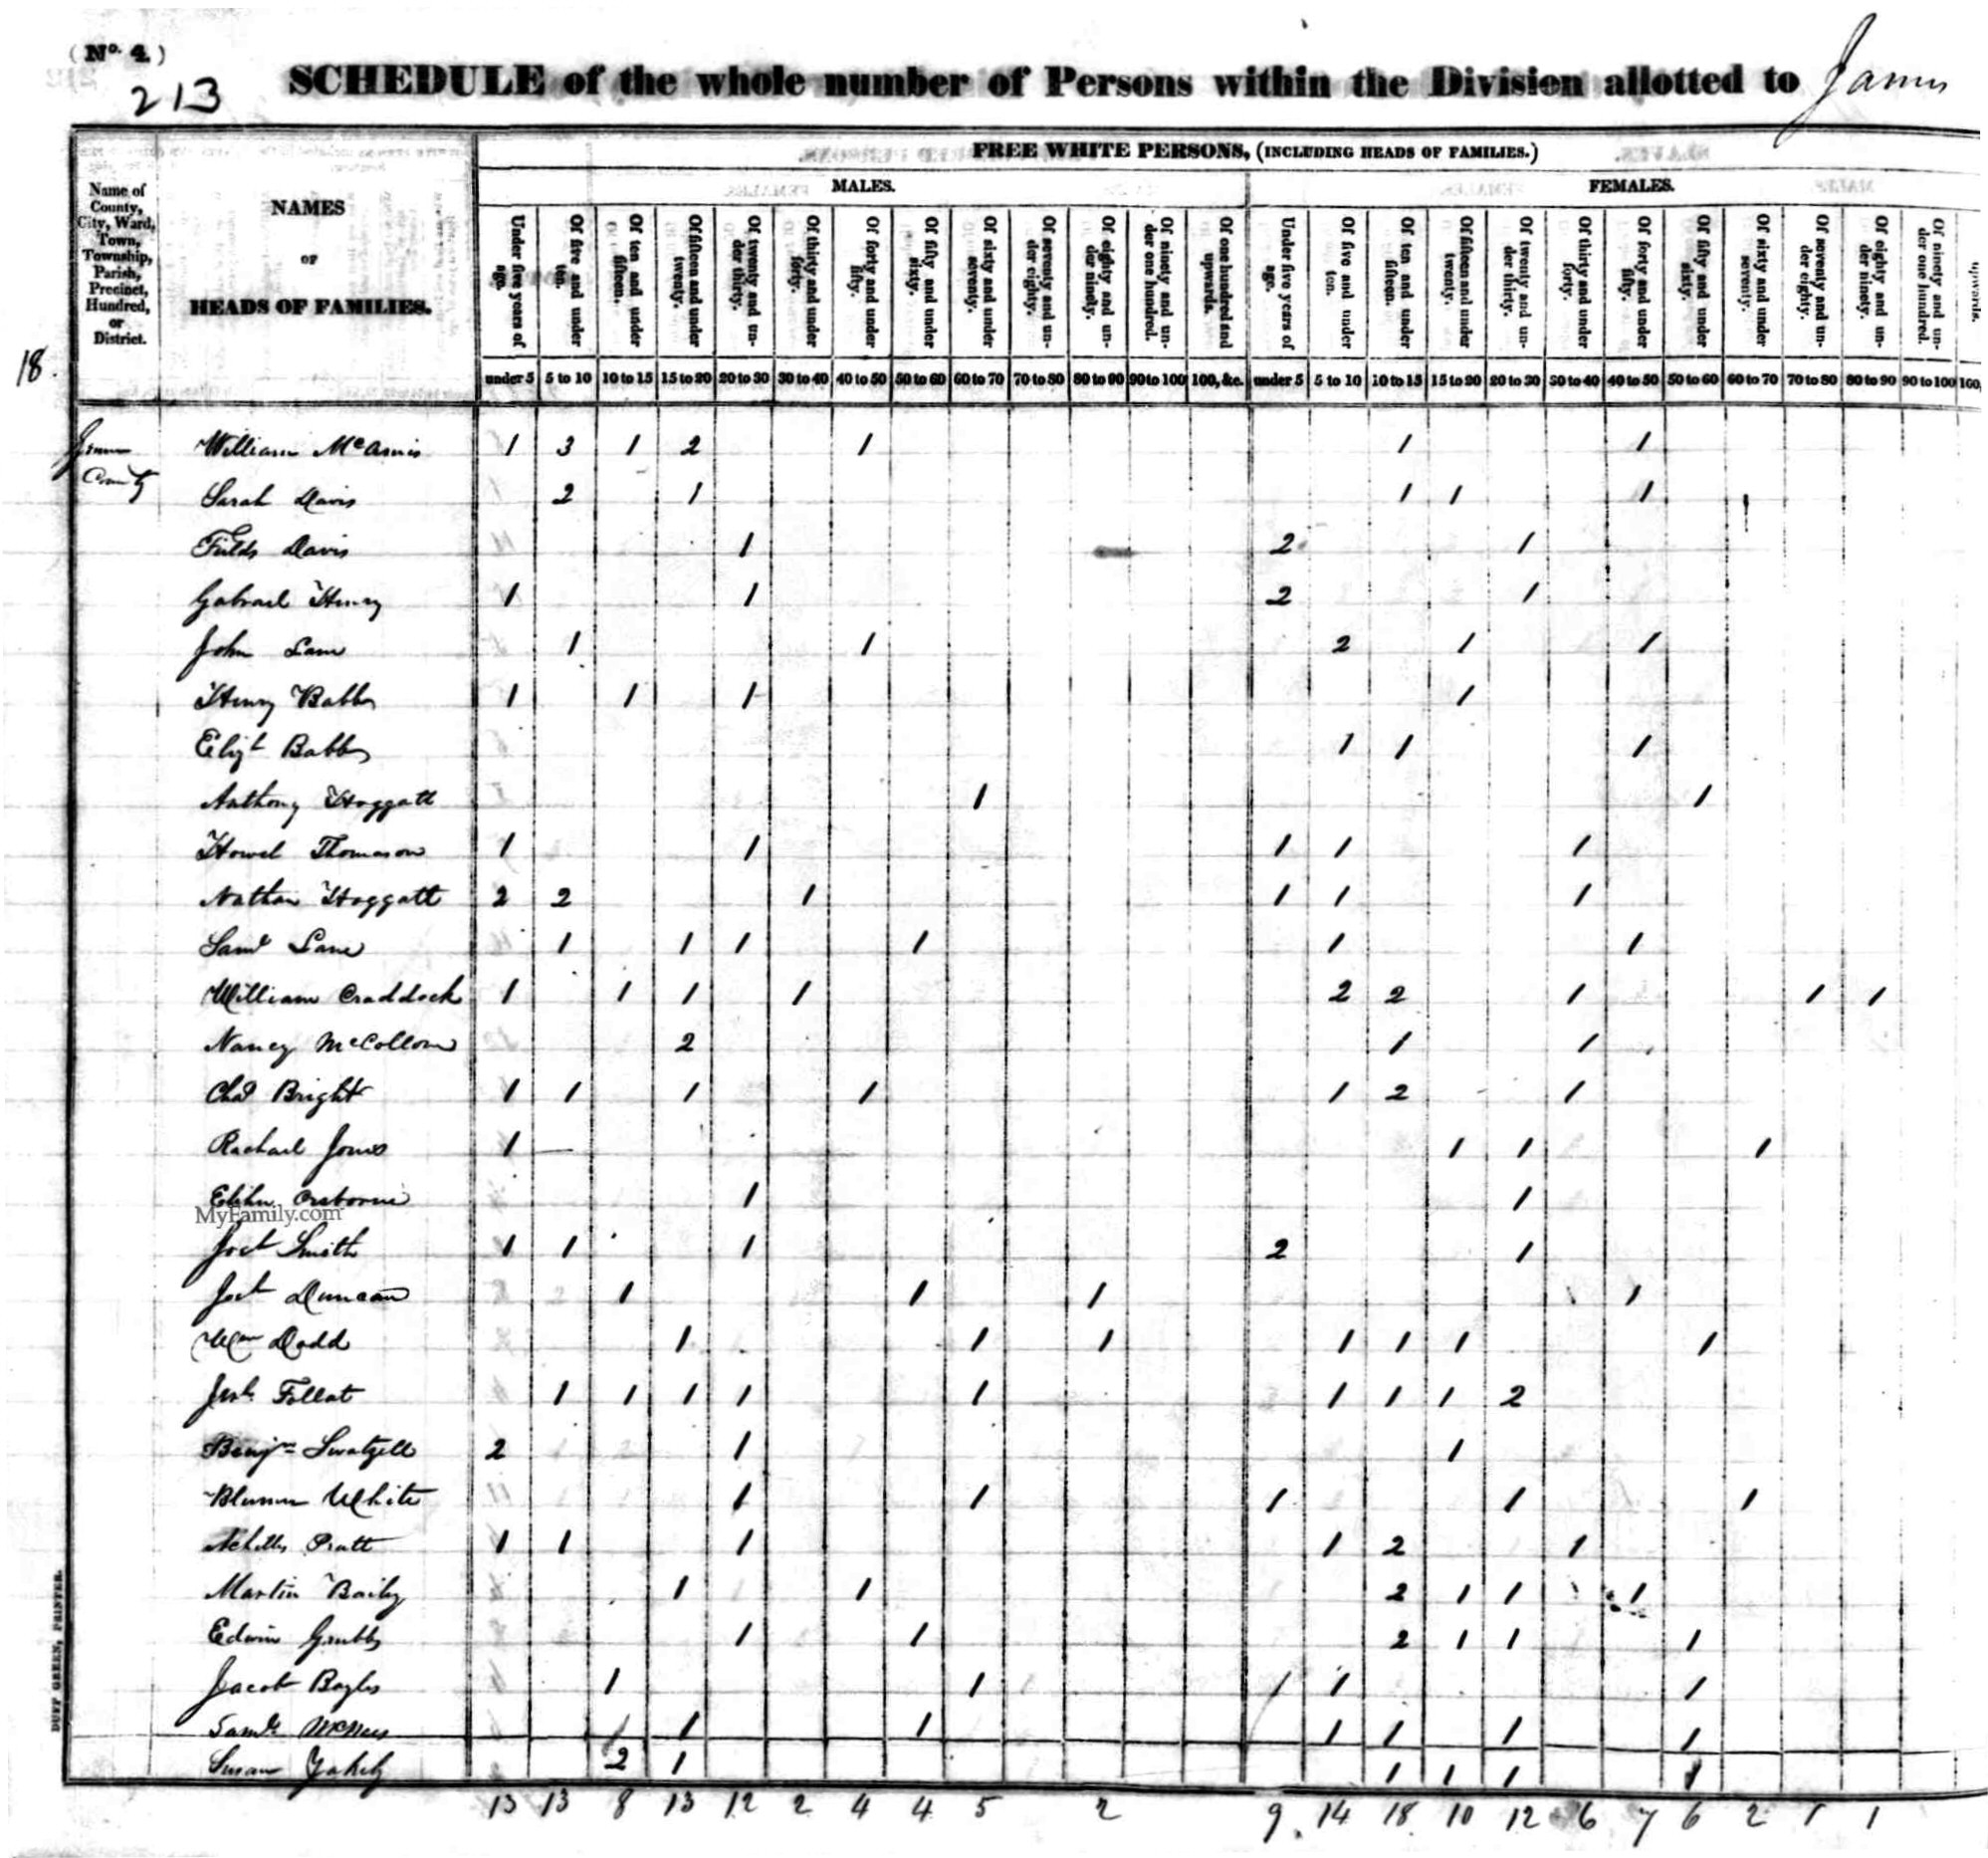 (No. 4.)
213
SCHEDULE of the whole number of Persons within the Division allotted to James
FREE WHITE PERSONS, (INCLUDING HEADS OF FAMILIES.)
MALES. FEMALES.
Name of County, City, Ward, Town, Township, Parish, Precinct, Hundred, or District.
NAMES
OF
HEADS OF FAMILIES.
Under five years of age. Of five and under ten. Of ten and under fifteen. Of fifteen and under twenty. Of twenty and under thirty. Of thirty and under forty. Of forty and under fifty. Of fifty and under sixty. Of sixty and under seventy. Of seventy and under eighty. Of eighty and under ninety. Of ninety and under one hundred. Of one hundred and upwards. Under five years of age. Of five and under ten. Of ten and under fifteen. Of fifteen and under twenty. Of twenty and under thirty. Of thirty and under forty. Of forty and under fifty. Of fifty and under sixty. Of sixty and under seventy. Of seventy and under eighty. Of eighty and under ninety. Of ninety and under one hundred. upwards.
18.
under 5 5 to 10 10 to 15 15 to 20 20 to 30 30 to 40 40 to 50 50 to 60 60 to 70 70 to 80 80 to 90 90 to 100 100, &c. under 5 5 to 10 10 to 15 15 to 20 20 to 30 30 to 40 40 to 50 50 to 60 60 to 70 70 to 80 80 to 90 90 to 100 100,
William McAmis 1 3 1 2 1 1 1
County
Sarah Davis 2 1 1 1 1
Fields Davis 1 2 1
Gabrael Henry 1 1 2 1
John Lane 1 1 2 1 1
Henry Babb 1 1 1 1
Elizt Babb 1 1 1
Anthony Hoggatt 1 1
Howel Thomason 1 1 1 1 1
Nathan Hoggatt 2 2 1 1 1 1
Saml Lane 1 1 1 1 1 1
William Craddock 1 1 1 1 2 2 1 1 1
Nancy McCollom 2 1 1
Chas Bright 1 1 1 1 1 2 1
Rachael Jones 1 1 1 1
Elihu Osborne 1 1
MyFamily.com
Smith 1 1 1 2 1
Duncan 1 1 1 1
Wm Dodd 1 1 1 1 1 1 1
1 1 1 1 1 1 1 1 2
Benjn Swatzell 2 1 1
White 1 1 1 1 1
Achilles Pratt 1 1 1 1 2 1
Martin Baily 1 1 2 1 1 1
Edwin Grubbs 1 1 2 1 1 1
Jacob Bayles 1 1 1 1 1
Saml McNees 1 1 1 1 1 1 1
Susan 2 1 1 1 1 1
13 13 8 13 12 2 4 4 5 2 9 14 18 10 12 6 7 6 2 1 1
DUFF GREEN, PRINTER.